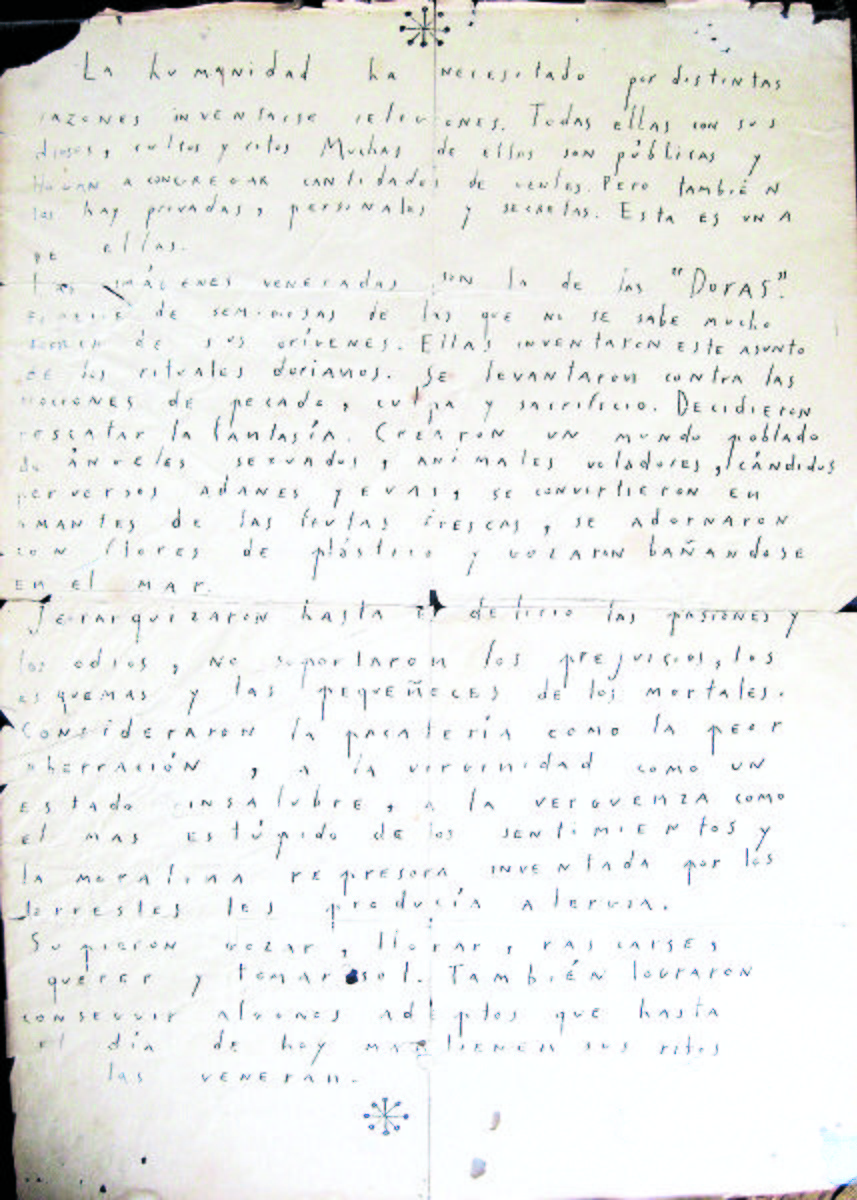 La humanidad ha necesitado por distintas
razones inventarse religiones. Todas ellas con sus
dioses, cultos y ritos Muchas de ellas son públicas y
a congregar cantidades de gentes. Pero también
las hay privadas, personales y secretas. Esta es una
de ellas.
Las imágenes veneradas son la de las "Doras".
Especie de semidiosas de las que no se sabe mucho
de sus orígenes. Ellas inventaron este asunto
de los rituales dorianos. Se levantaron contra las
nociones de pecado, culpa y sacrificio. Decidieron
rescatar la fantasía. Crearon un mundo poblado
de ángeles sexuados, animales voladores, cándidos
perversos adanes y evas, se convirtieron en
amantes de las frutas frescas, se adornaron
con flores de plástico y gozaron bañandose
en el mar.
Jerarquizaron hasta el delirio las pasiones y
los odios, no soportaron los prejuicios, los
esquemas y las pequeñeces de los mortales.
Consideraron la pacatería como la peor
aberración, a la virginidad como un
estado insalubre, a la verguenza como
el mas estúpido de los sentimientos y
la moralina represora inventada por los
terrestes les producía alergia.
Supieron gozar, llorar, rascarse,
querer y tomar sol. También lograron
conseguir algunos adeptos que hasta
el día de hoy mantienen sus ritos
las veneran.